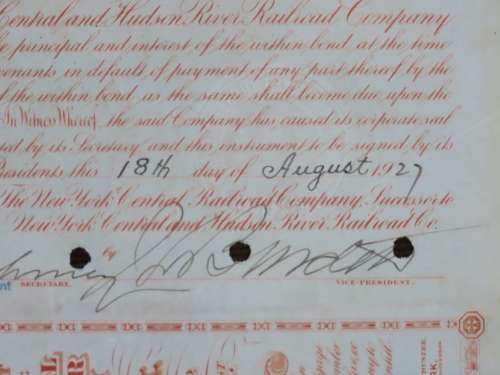 Central and Hudson River Railroad Company
principal and interest of the within bond at the time
venants in default of payment of any part thereof by the
of the within bond as the same shall become due upon the
In Witness Whereof, the said Company has caused its corporate seal
ted by its Secretary and this instrument to be signed by its
Presidents this 18th day of August 1927
The New York Central Railroad Company, Successor to
New York Central and Hudson River Railroad Co.
by
SECRETARY. VICE-PRESIDENT.